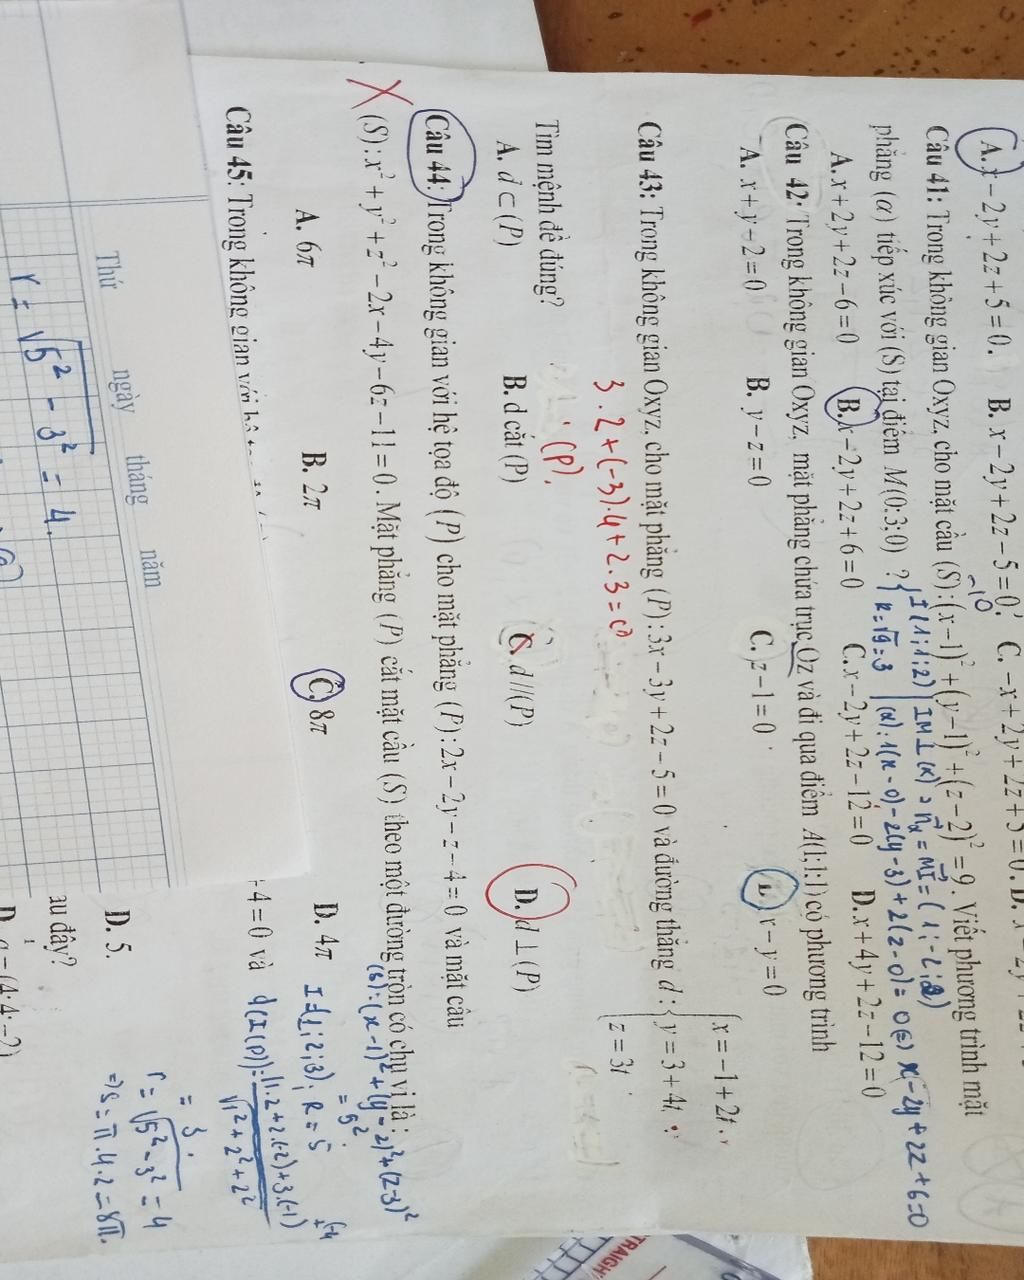 A. x − 2y + 2z + 5 = 0. B. x − 2y + 2z − 5 = 0. C. −x + 2y + 2z + 5 = 0. D.
Câu 41: Trong không gian Oxyz, cho mặt cầu (S): (x − 1)² + (y − 1)² + (z − 2)² = 9. Viết phương trình mặt
phẳng (α) tiếp xúc với (S) tại điểm M(0;3;0) ?
I(1;1;2) IM ⊥ (α) ⇒ n = MI = (1; −2; 2)
R = √9 = 3 (α): 1(x − 0) − 2(y − 3) + 2(z − 0) = 0 (=) x − 2y + 2z + 6 = 0
A. x + 2y + 2z − 6 = 0 B. x − 2y + 2z + 6 = 0 C. x − 2y + 2z − 12 = 0 D. x + 4y + 2z − 12 = 0
Câu 42: Trong không gian Oxyz, mặt phẳng chứa trục Oz và đi qua điểm A(1;1;1) có phương trình
A. x + y − 2 = 0 B. y − z = 0 C. z − 1 = 0 x − y = 0
Câu 43: Trong không gian Oxyz, cho mặt phẳng (P): 3x − 3y + 2z − 5 = 0 và đường thẳng d: { x = −1 + 2t
y = 3 + 4t,
z = 3t
3.2 + (−3).4 + 2.3 = 0
Tìm mệnh đề đúng?
(P).
A. d ⊂ (P) B. d cắt (P) C. d // (P) D. d ⊥ (P)
Câu 44: Trong không gian với hệ tọa độ (P) cho mặt phẳng (P): 2x − 2y − z − 4 = 0 và mặt cầu
(S): x² + y² + z² − 2x − 4y − 6z − 11 = 0. Mặt phẳng (P) cắt mặt cầu (S) theo một đường tròn có chu vi là:
(S): (x − 1)² + (y − 2)² + (z − 3)²
= 5²
A. 6π B. 2π C. 8π D. 4π
I = (1; 2; 3); R = 5
d(I(P)) = |1.2 + 2.(−2) + 3.(−1) + (−4
√1² + 2² + 2²
= 3.
r = √5² − 3² = 4
⇒ S = π.4.2 = 8π.
Câu 45: Trong không gian với
− 4 = 0 và
D. 5.
au đây?
D.
Thứ ngày tháng năm
r = √5² − 3² = 4.